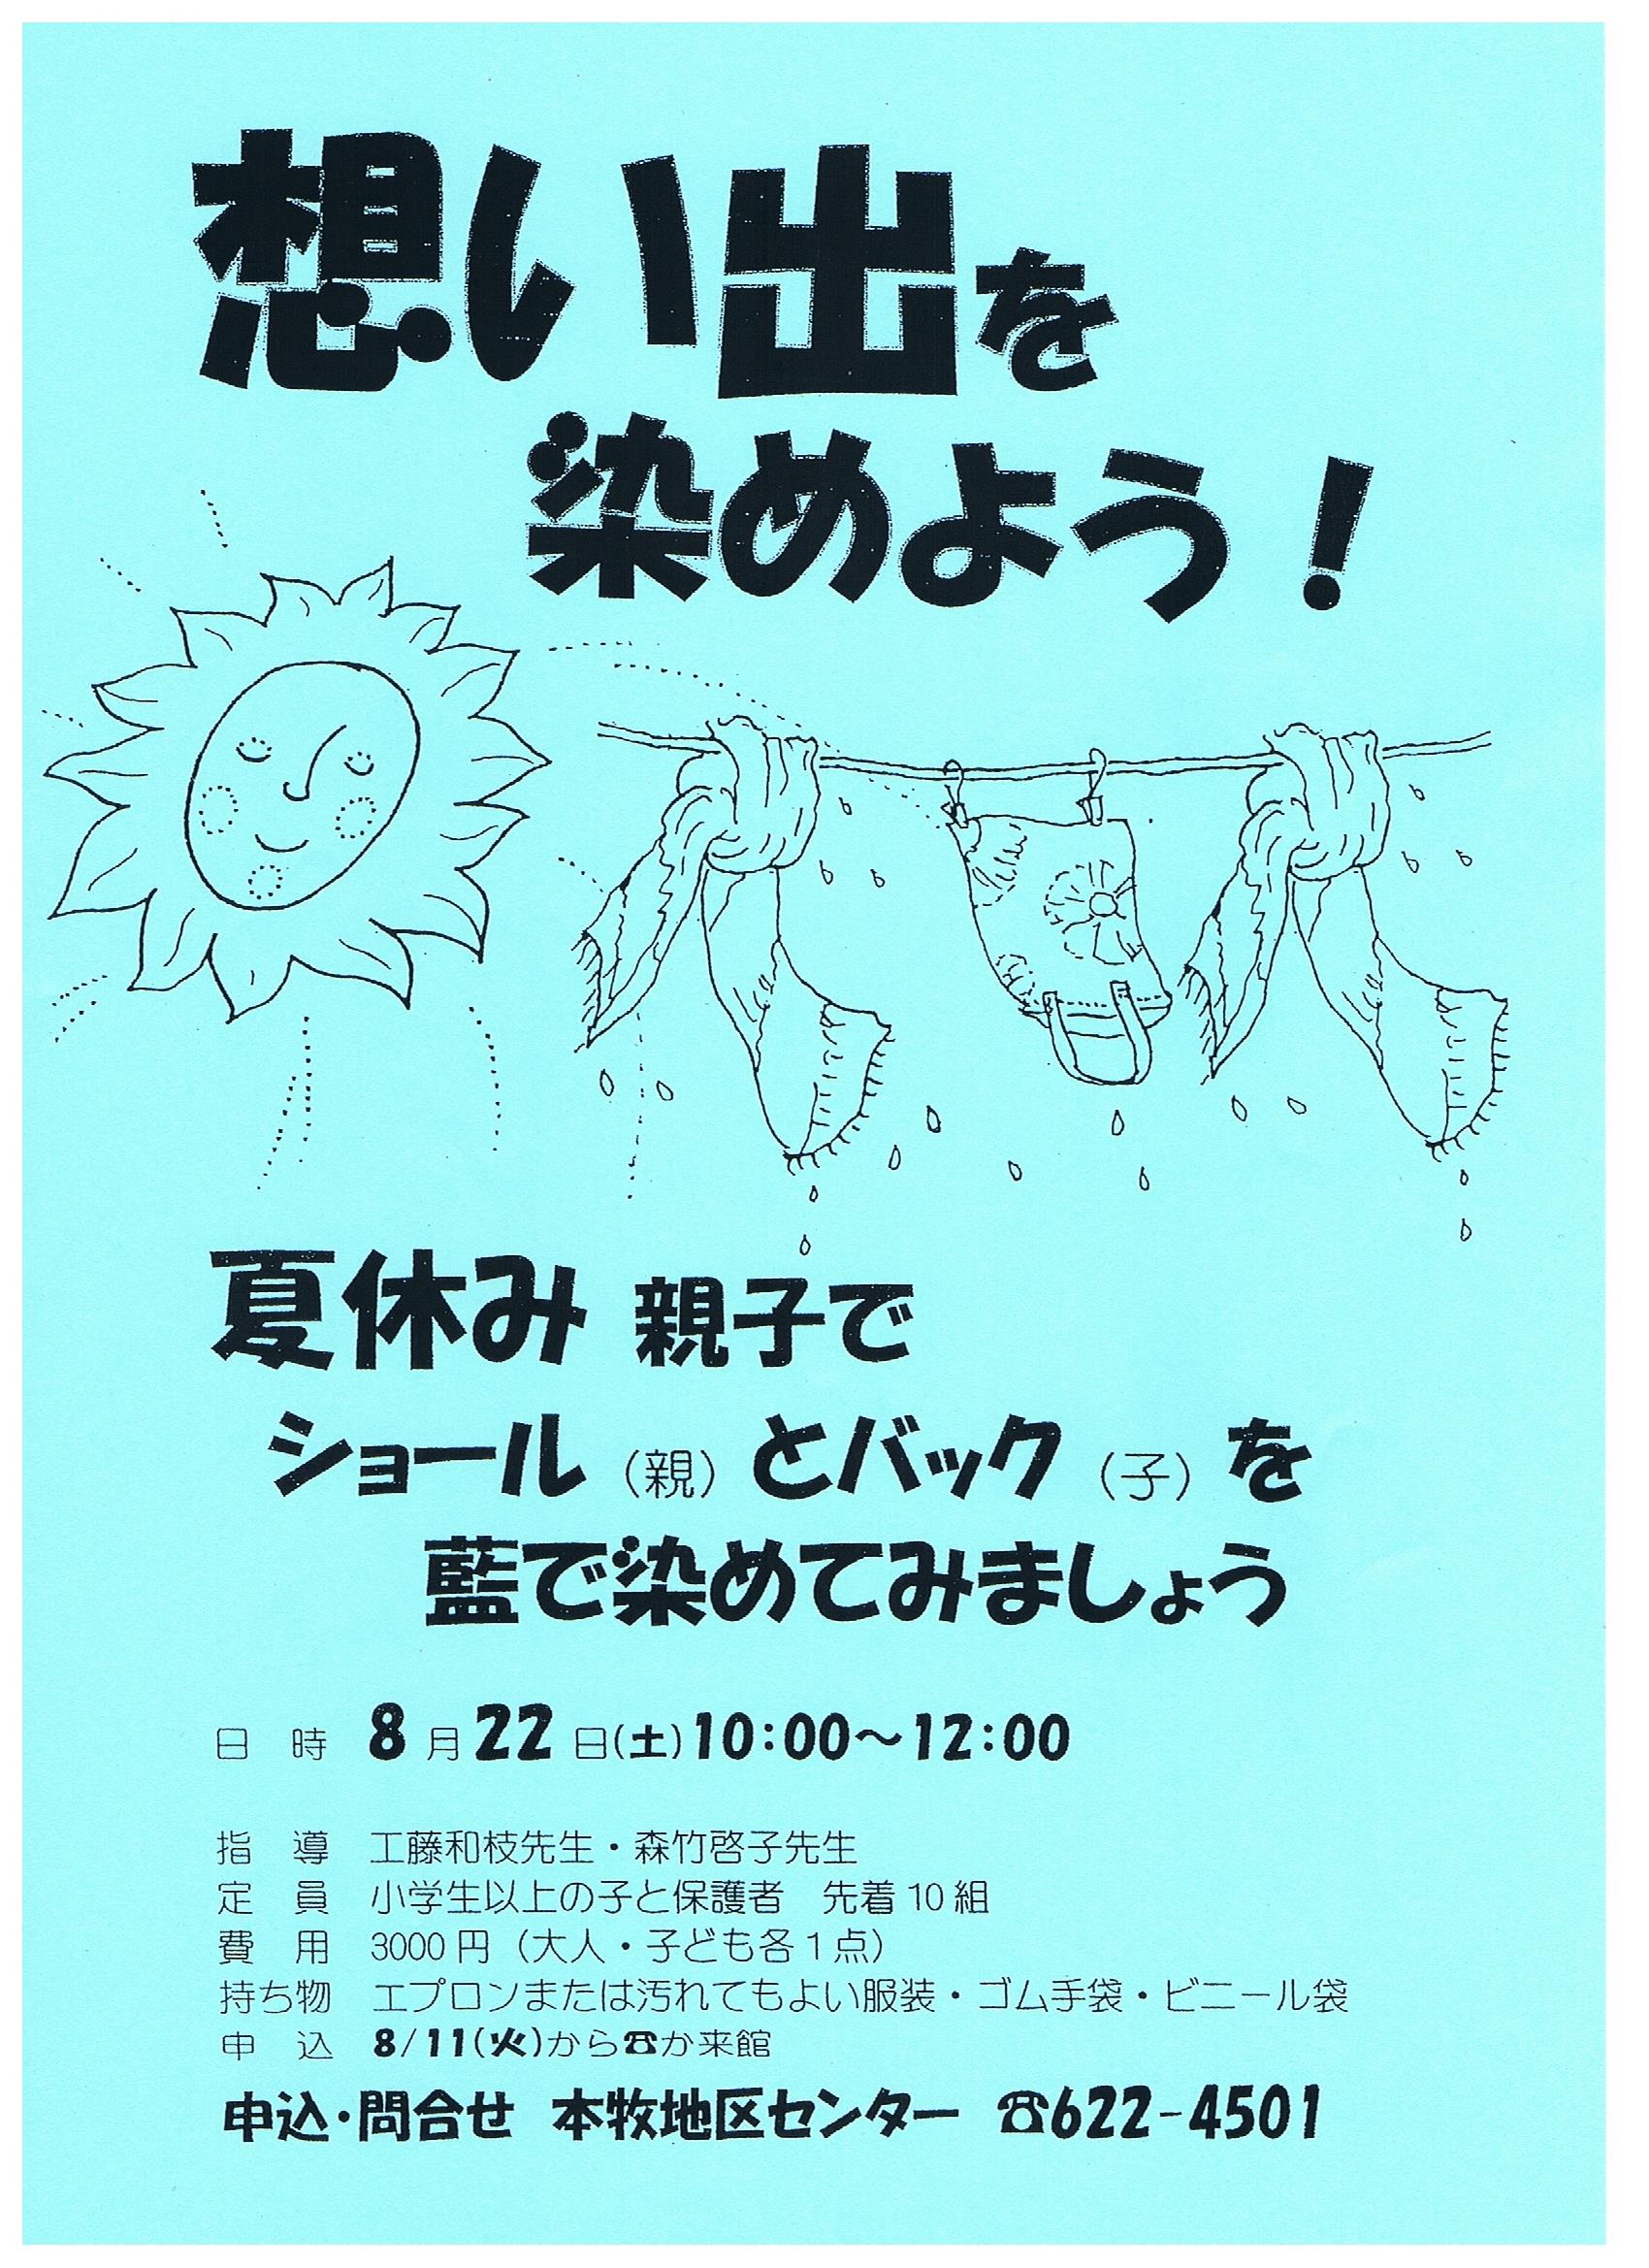 想い出を
染めよう！
夏休み 親子で
ショール（親）とバック（子）を
藍で染めてみましょう
日　時　8月22日(土)10:00～12:00
指　導　工藤和枝先生・森竹啓子先生
定　員　小学生以上の子と保護者　先着10組
費　用　3000円（大人・子ども各1点）
持ち物　エプロンまたは汚れてもよい服装・ゴム手袋・ビニール袋
申　込　8/11(火)から☎か来館
申込・問合せ　本牧地区センター　☎622-4501